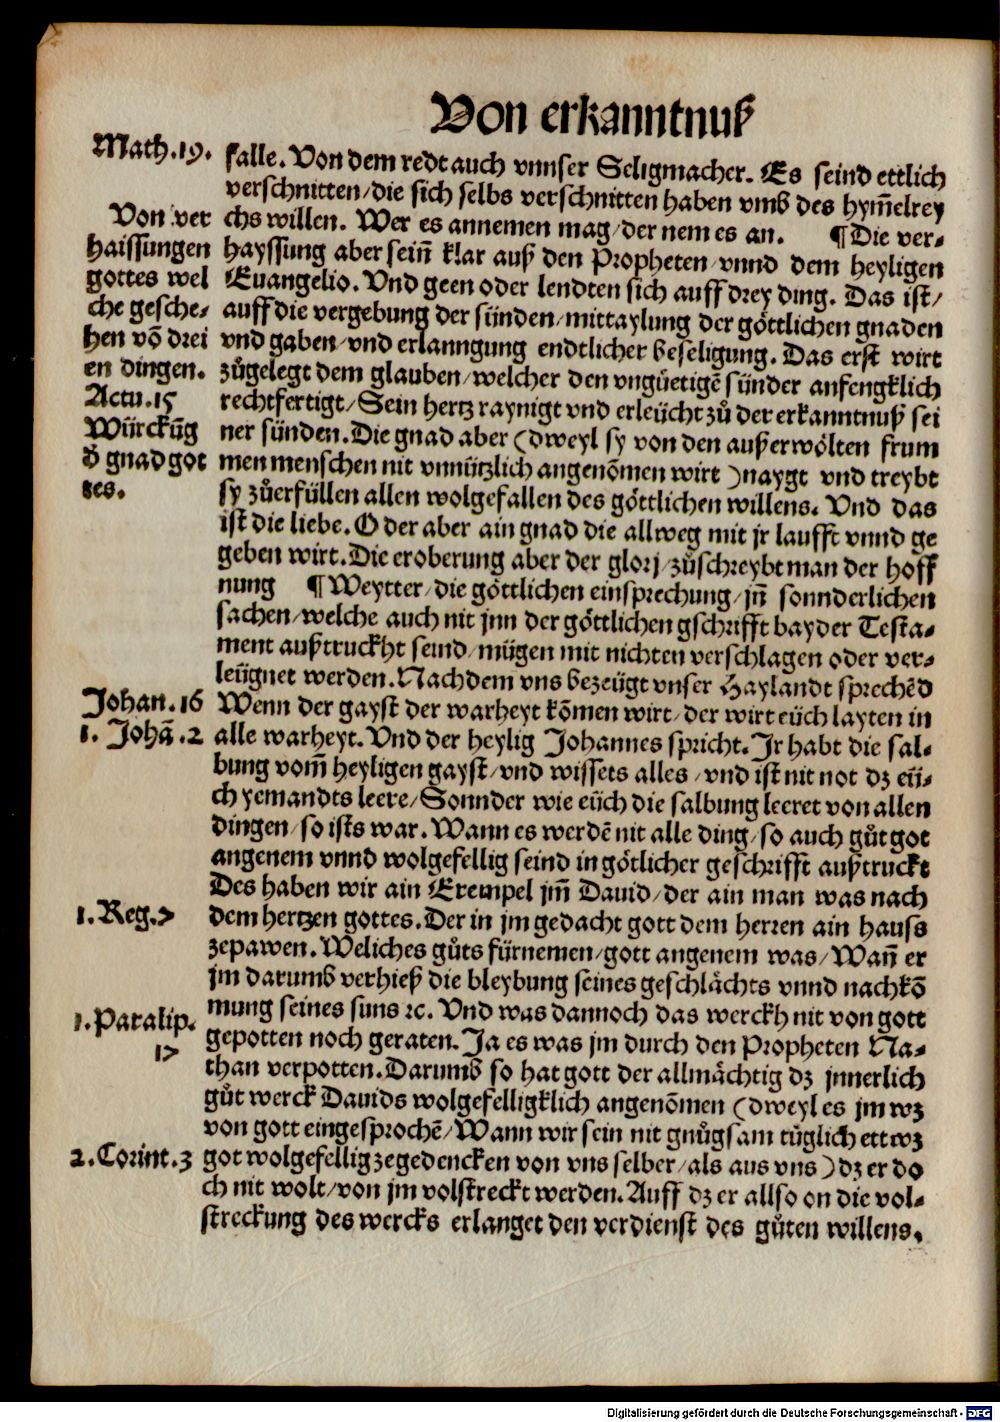 Von erkanntnuß
Math.19.
falle. Von dem redt auch vnnser Seligmacher. Es seind ettlich
verschnitten/die sich selbs verschnitten haben vmb des hym̃elrey
chs willen. Wer es annemen mag/der nem es an. ¶Die ver⸗
hayssung aber sein̄ klar auß den Propheten/vnnd dem heyligen
Euangelio. Vnd geen oder lendten sich auff drey ding. Das ist/
auff die vergebung der sünden/mittaylung der göttlichen gnaden
vnd gaben/vnd erlanngung endtlicher beseligung. Das erst wirt
zůgelegt dem glauben/welcher den vngüetigẽ sünder anfengklich
rechtfertigt/Sein hertz raynigt vnd erleücht zů der erkanntnuß sei
ner sünden. Die gnad aber (dweyl sy von den außerwölten frum
men menschen nit vnnützlich angenõmen wirt) naygt vnd treybt
sy zůerfüllen allen wolgefallen des göttlichen willens. Vnd das
ist die liebe. Oder aber ain gnad die allweg mit jr laufft vnnd ge
geben wirt. Die eroberung aber der glorj/zůschreybt man der hoff
nung ¶Weytter/die göttlichen einsprechung/jñ sonnderlichen
sachen/welche auch nit jnn der göttlichen gschrifft bayder Testa⸗
ment außtruckht seind/mügen mit nichten verschlagen oder ver⸗
leügnet werden. Nachdem vns bezeügt vnser Haylandt sprechẽd
Wenn der gayst der warheyt kõmen wirt/der wirt eüch layten in
alle warheyt. Vnd der heylig Johannes spricht. Jr habt die sal⸗
bung vom̃ heyligen gayst/vnd wissets alles/vnd ist nit not dz eü⸗
ch yemandts leere/Sonnder wie eüch die salbung leeret von allen
dingen/so ists war. Wann es werdẽ nit alle ding/so auch gůt got
angenem vnnd wolgefellig seind in götlicher geschrifft außtruckt
Des haben wir ain Exempel jm̃ Dauid/der ain man was nach
dem hertzen gottes. Der in jm gedacht gott dem herren ain hauss
zepawen. Weliches gůts fürnemen/gott angenem was/Wan̄ er
jm darumb verhieß die bleybung seines geschlächts vnnd nachkõ
mung seines suns ꝛc. Vnd was dannoch das werckh nit von gott
gepotten noch geraten. Ja es was jm durch den Propheten Na⸗
than verpotten. Darumb so hat gott der allmächtig dz jnnerlich
gůt werck Dauids wolgefelligklich angenõmen (dweyl es jm wz
von gott eingesprochẽ/Wann wir sein nit gnůgsam tüglich ettwz
got wolgefellig zegedencken von vns selber/als aus vns) dz er do
ch nit wolt/von jm volstreckt werden. Auff dz er allso on die vol⸗
streckung des wercks erlanget den verdienst des gůten willens.
Von ver
haissungen
gottes wel
che gesche⸗
hen võ drei
en dingen.
Actu.15
Würckũg
ð gnad got
tes.
Johan.16
1. Johã.2
1. Reg.7
1. Paralip.
17
2. Corint.3
Digitalisierung gefördert durch die Deutsche Forschungsgemeinschaft - DFG